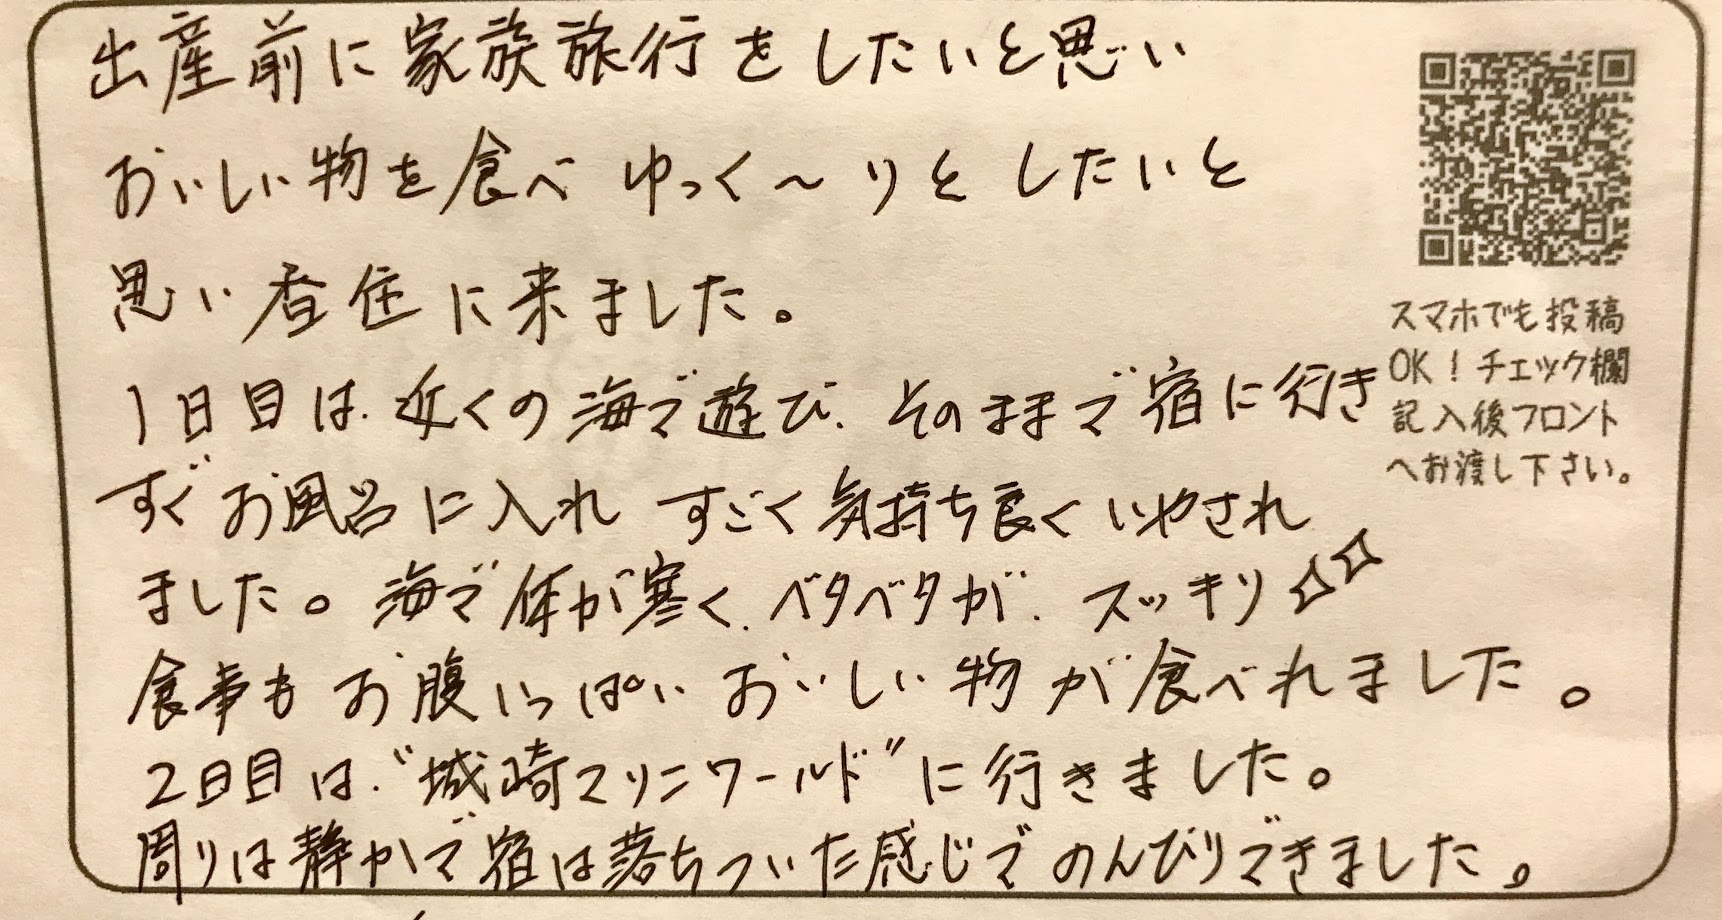 出産前に家族旅行をしたいと思い
おいしい物を食べ ゆっく～りと したいと
思い香住に来ました。
1日目は、近くの海で遊び、そのままで宿に行き
すぐお風呂に入れ すごく気持ち良くいやされ
ました。海で体が寒く、ベタベタが、スッキリ✧✧
食事もお腹いっぱいおいしい物が食べれました。
2日目は、“城崎マリンワールド”に行きました。
周りは静かで宿は落ちついた感じでのんびりできました。
スマホでも投稿
OK！チェック欄
記入後フロント
へお渡し下さい。